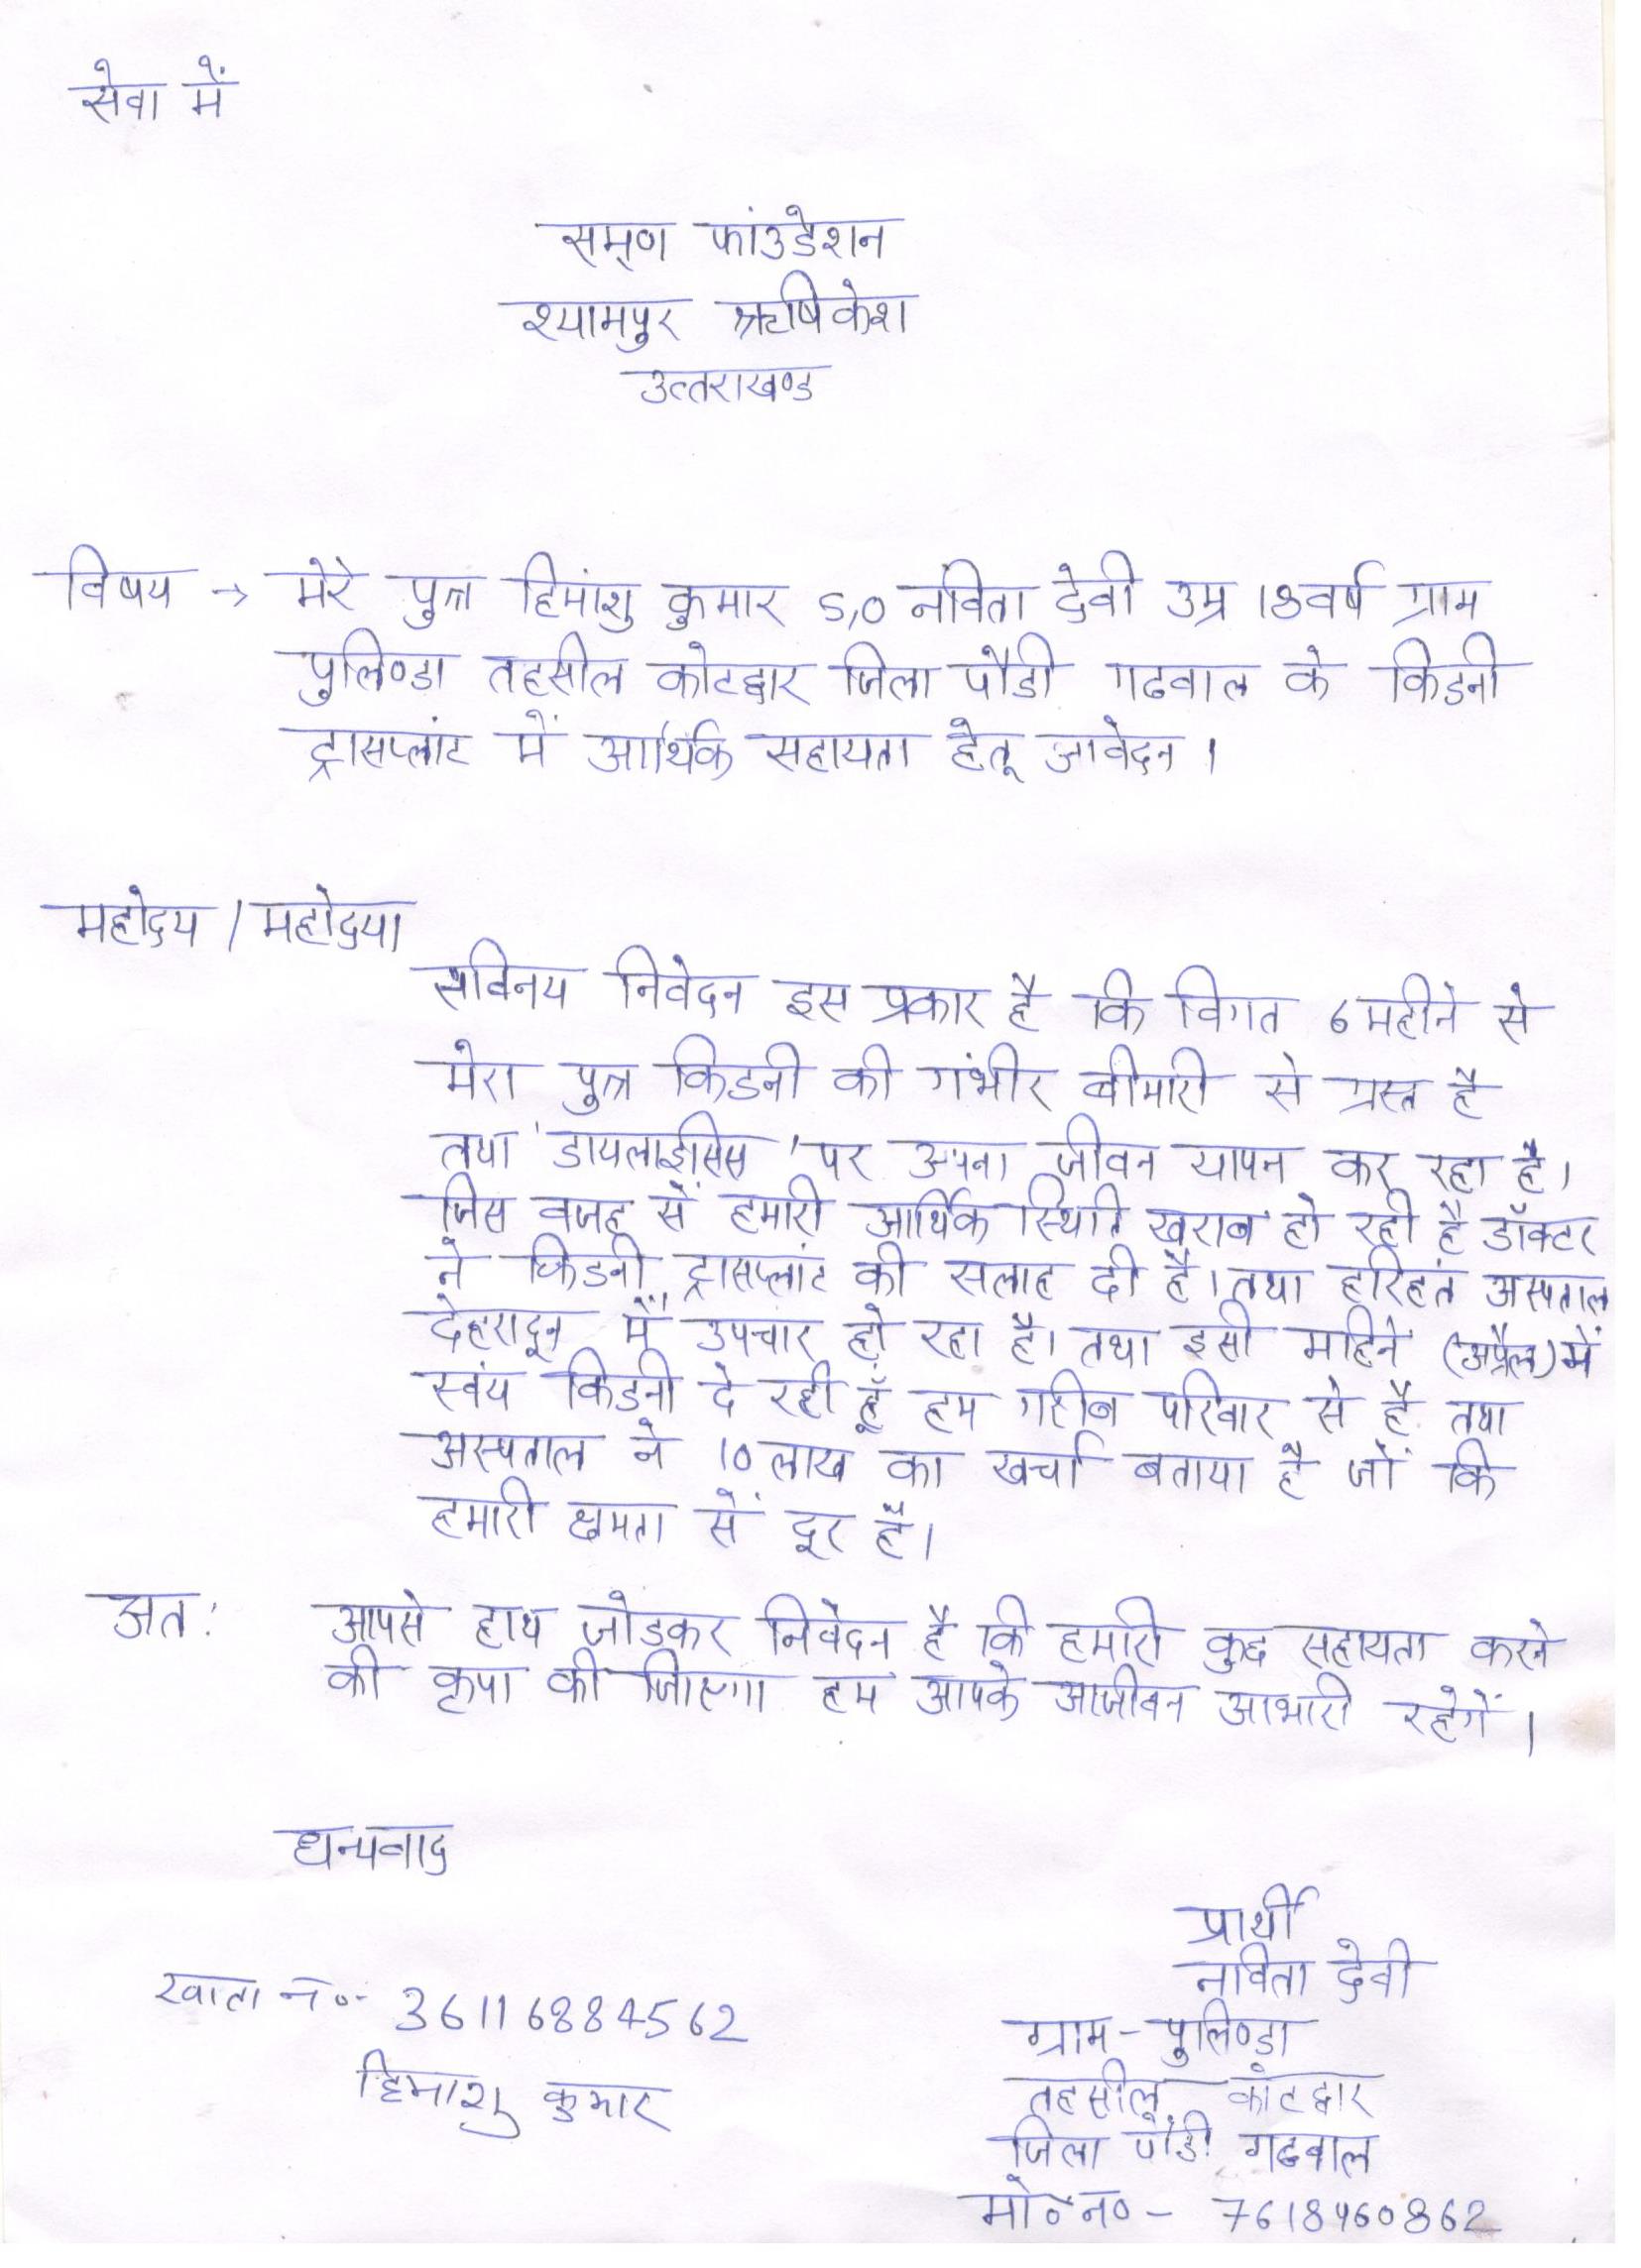 सेवा में
समूण फांउडेशन
श्यामपुर ऋषिकेश
उत्तराखण्ड
विषय → मेरे पुत्र हिमांशु कुमार S/O नविता देवी उम्र 18 वर्ष ग्राम
पुलिण्डा तहसील कोटद्वार जिला पौडी गढवाल के किडनी
ट्रासप्लांट में आर्थिक सहायता हेतू आवेदन ।
महोदय / महोदया
सविनय निवेदन इस प्रकार है कि विगत 6 महीने से
मेरा पुत्र किडनी की गंभीर बीमारी से ग्रस्त है
तथा 'डायलाइसिस' पर अपना जीवन यापन कर रहा है।
जिस वजह सें हमारी आर्थिक स्थिति खराब हो रही है डॉक्टर
ने किडनी ट्रासप्लांट की सलाह दी है। तथा हरिहतं अस्पताल
देहरादून में उपचार हो रहा है। तथा इसी महिने (अप्रैल) में
स्वंय किडनी दे रही हूँ हम गरीब परिवार से है तथा
अस्पताल ने 10 लाख का खर्चा बताया है जों कि
हमारी क्षमता सें दूर है।
अत: आपसे हाथ जोडकर निवेदन है कि हमारी कुछ सहायता करने
की कृपा की जिएगा हम आपके आजीवन आभारी रहेगें ।
धन्यवाद
प्रार्थी
नविता देवी
खाता न०- 36116884562
ग्राम - पुलिण्डा
हिमाशु कुमार
तहसील कोटद्वार
जिला पौडी गढवाल
मो० न० - 7618460862